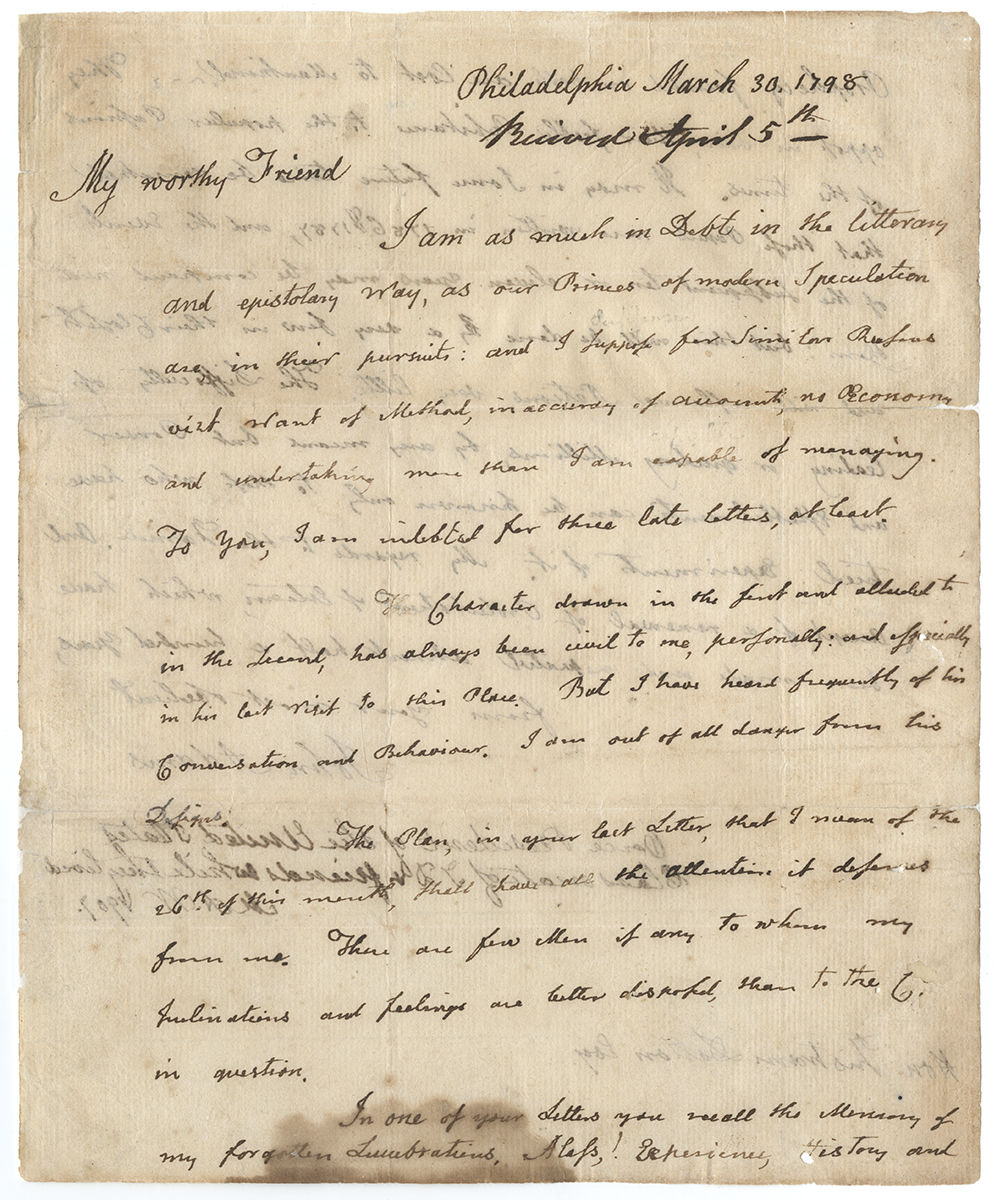 Philadelphia March 30. 1798
Recived April 5th
My worthy Friend
I am as much in Debt in the litterary
and epistolary Way, as our Princes of modern Speculation
are in their pursuits: and I suppose for Similar Reasons
vizt Want of Method, inaccuracy of accounts, no Œconomy
and undertaking more than I am capable of managing.
To You, I am indebted for three late letters, at least.
The Character drawn in the first and alluded to
in the Second, has always been civil to me, personally: and especially
in his last visit to this Place. But I have heard frequently of his
Conversation and Behaviour. I am out of all danger from his
Designs.
The Plan, in your last Letter, that I mean of the
26th of this month, shall have all the attention it deserves
from me. There are few Men if any to whom my
Inclinations and feelings are better disposed, than to the C.
in question.
In one of your Letters you recall the Memory of
my forgotten Lucubrations. Alass,! Experience, History and